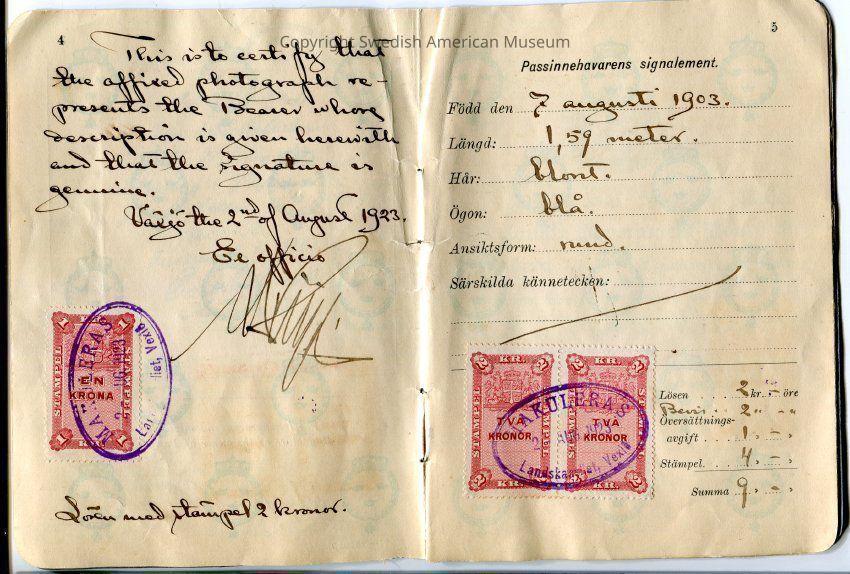 Copyright Swedish American Museum
4
This is to certify that
the affixed photograph re-
presents the Bearer whose
description is given herewith
and that the signature is
genuine.
Växjö the 2nd of August 1923.
Ex officio
STAMPEL
1
EN
KRONA
MAKULERAS
2 AUG. 1923
Lösen med stämpel 2 kronor.
5
Passinnehavarens signalement.
Född den 7 augusti 1903.
Längd: 1,59 meter.
Hår: blont.
Ögon: blå.
Ansiktsform: rund.
Särskilda kännetecken:
2 KR. 2 2 KR. 2
STAMPEL
TVÅ KRONOR TVÅ KRONOR
MAKULERAS
2 AUG. 1923
Lösen 2 kr. - öre
Bevis 2 " - "
Översättnings-
avgift 1 " - "
Stämpel 4 " - "
Summa 9 " - "